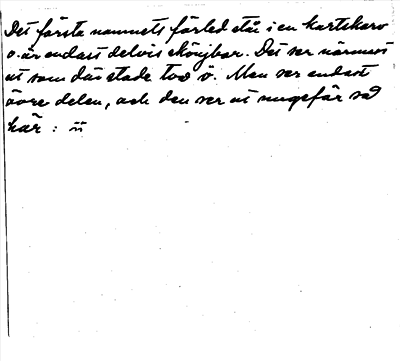 Det första namnets förled står i en kartskarv
o. är endast delvis skönjbar. Det ser närmast
ut som där stode två ö. Man ser endast
övre delen, och den ser ut ungefär så
här :